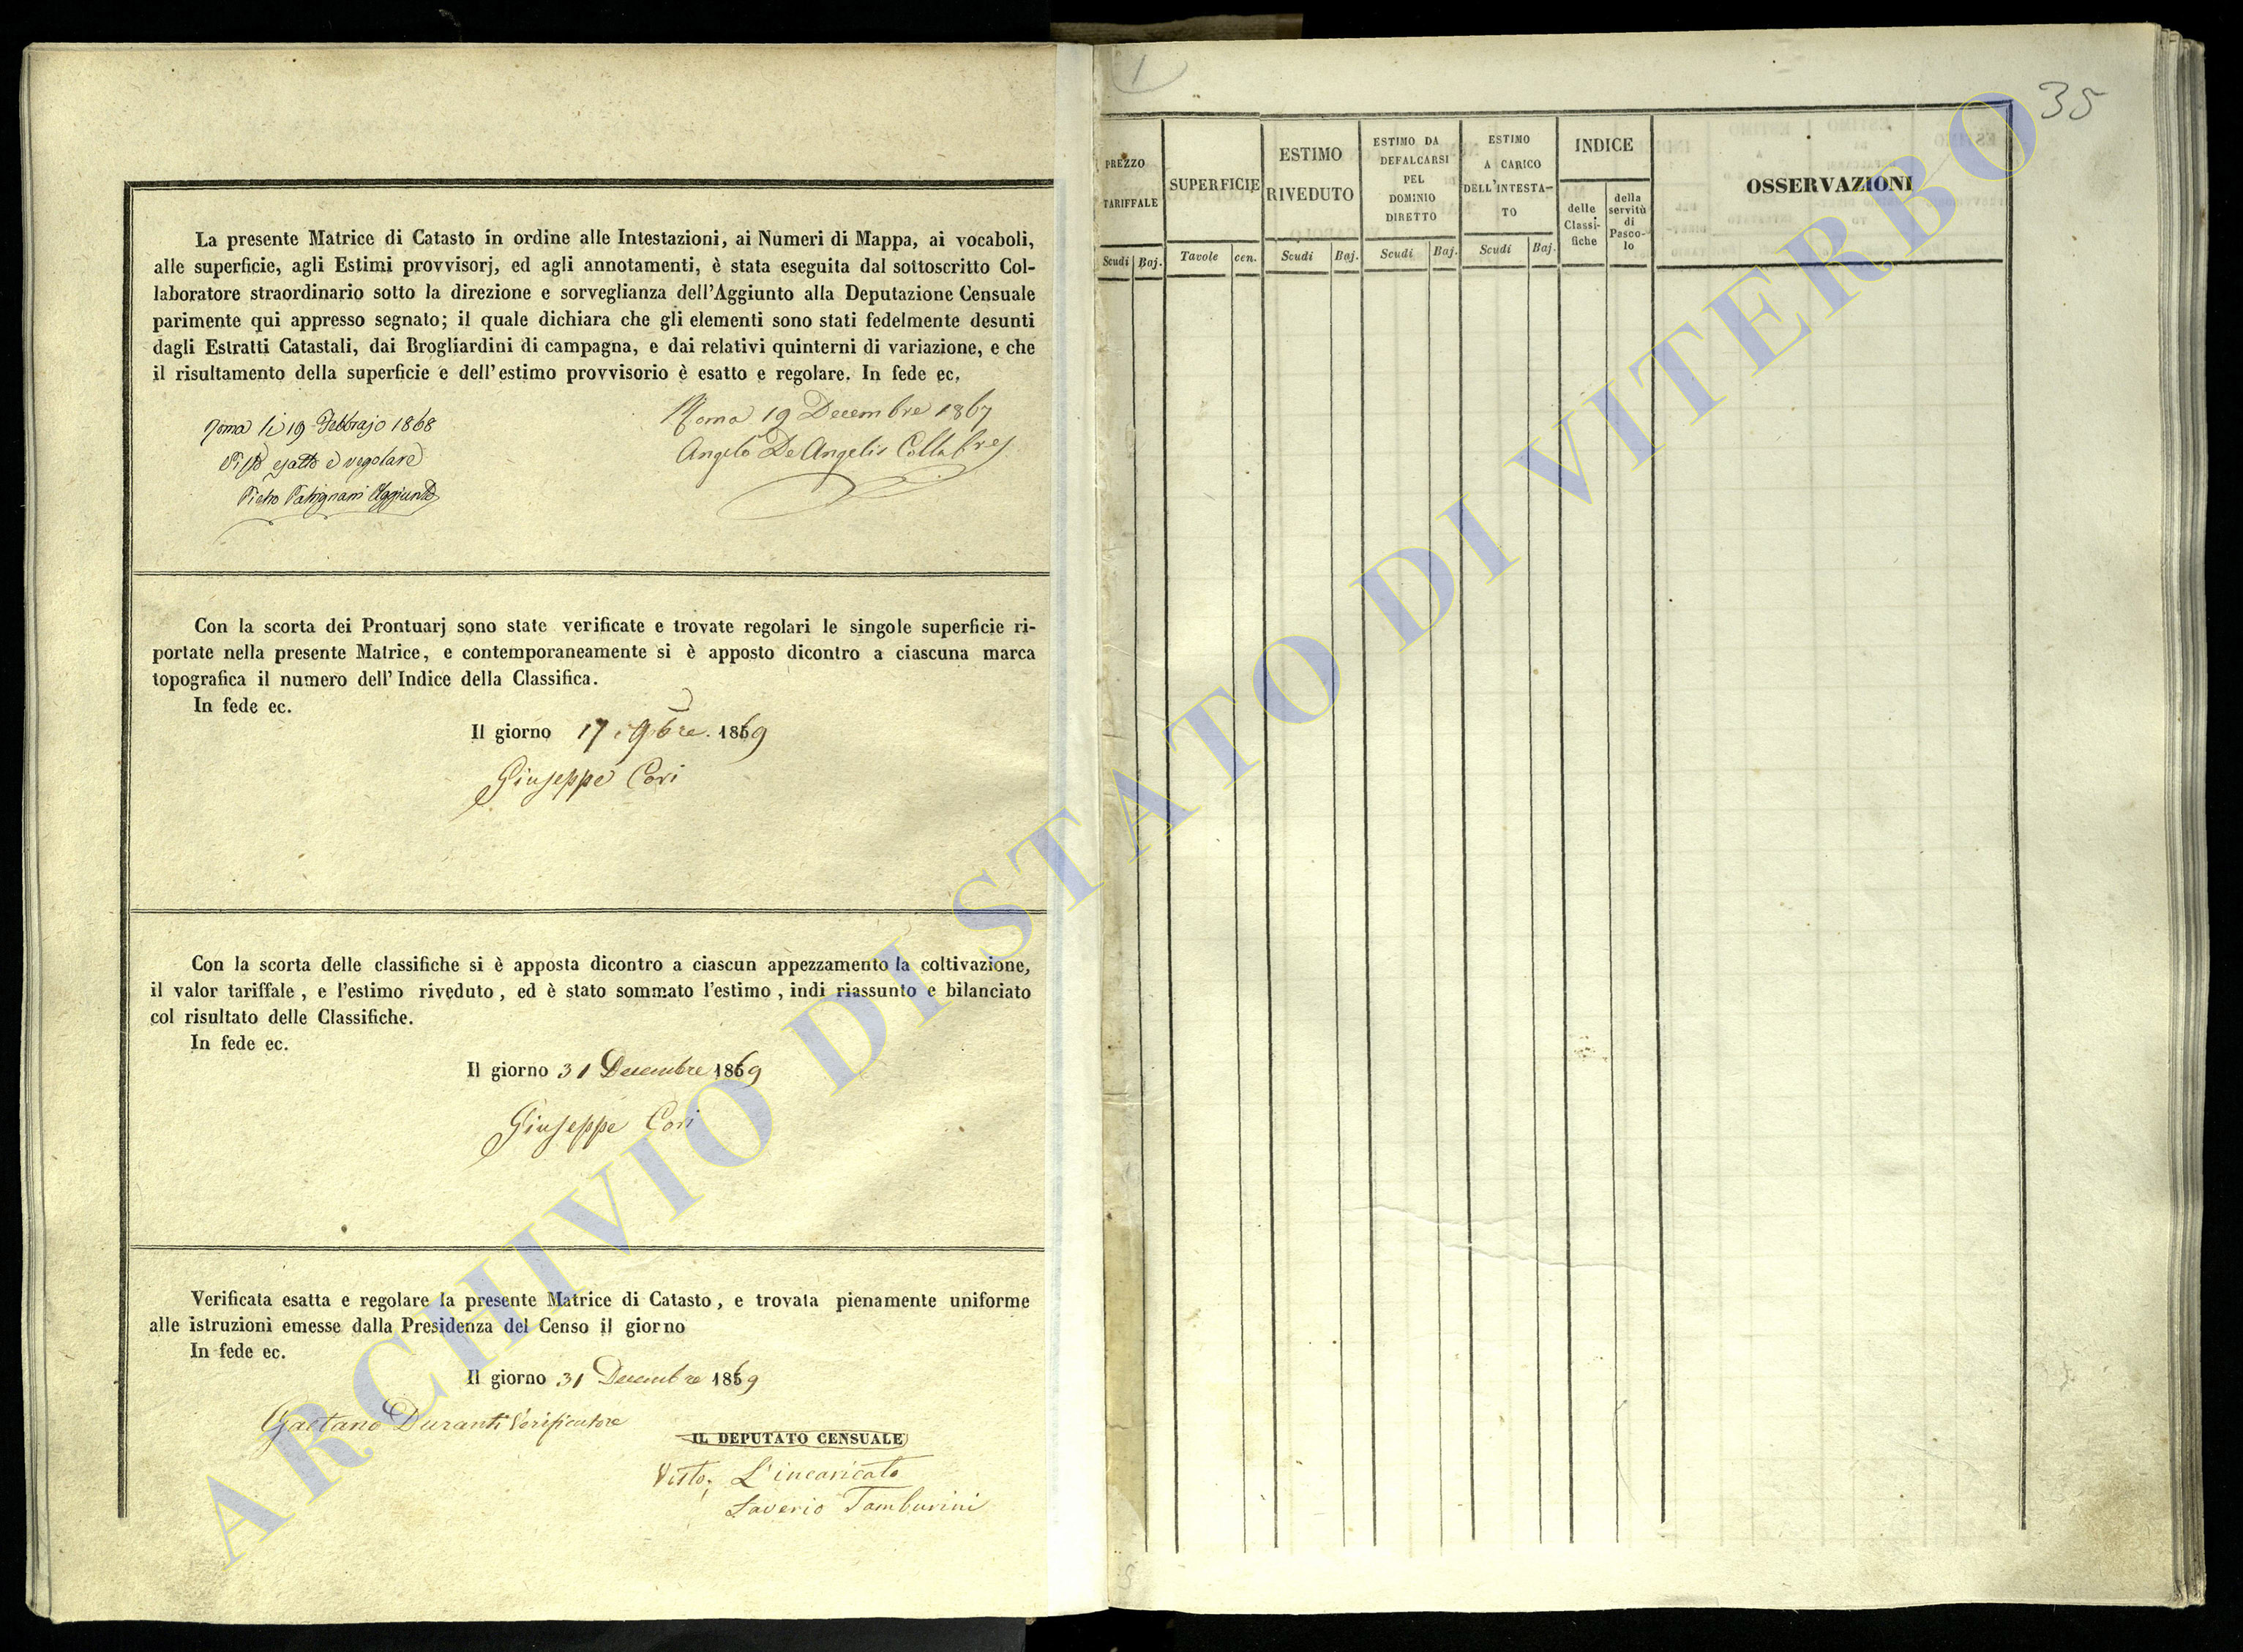 La presente Matrice di Catasto in ordine alle Intestazioni, ai Numeri di Mappa, ai vocaboli,
alle superficie, agli Estimi provvisorj, ed agli annotamenti, è stata eseguita dal sottoscritto Col-
laboratore straordinario sotto la direzione e sorveglianza dell'Aggiunto alla Deputazione Censuale
parimente qui appresso segnato; il quale dichiara che gli elementi sono stati fedelmente desunti
dagli Estratti Catastali, dai Brogliardini di campagna, e dai relativi quinterni di variazione, e che
il risultamento della superficie e dell'estimo provvisorio è esatto e regolare. In fede ec.
Roma 19 Decembre 1867
Angelo De Angelis Collabre
Roma li 19 Febbrajo 1868
esatto e regolare
Pietro Aggiunto
Con la scorta dei Prontuarj sono state verificate e trovate regolari le singole superficie ri-
portate nella presente Matrice, e contemporaneamente si è apposto dicontro a ciascuna marca
topografica il numero dell'Indice della Classifica.
In fede ec.
Il giorno 17 9bre. 1869
Giuseppe Cori
Con la scorta delle classifiche si è apposta dicontro a ciascun appezzamento la coltivazione,
il valor tariffale, e l'estimo riveduto, ed è stato sommato l'estimo, indi riassunto e bilanciato
col risultato delle Classifiche.
In fede ec.
Il giorno 31 Decembre 1869
Giuseppe Cori
Verificata esatta e regolare la presente Matrice di Catasto, e trovata pienamente uniforme
alle istruzioni emesse dalla Presidenza del Censo il giorno
In fede ec.
Il giorno 31 Decembre 1869
Gaetano Duranti Verificatore
IL DEPUTATO CENSUALE
Visto: L'incaricato
Saverio Tamburini
1
35
PREZZO
TARIFFALE
Scudi Baj.
SUPERFICIE
Tavole cen.
ESTIMO
RIVEDUTO
Scudi Baj.
ESTIMO DA
DEFALCARSI
PEL
DOMINIO
DIRETTO
Scudi Baj.
ESTIMO
A CARICO
DELL'INTESTA-
TO
Scudi Baj.
INDICE
delle
Classi-
fiche
della
servitù
di
Pasco-
lo
OSSERVAZIONI
ARCHIVIO DI STATO DI VITERBO